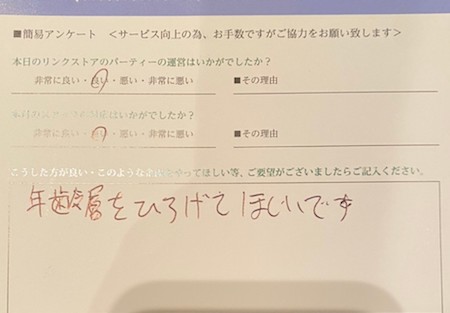 ■簡易アンケート ＜サービス向上の為、お手数ですがご協力をお願い致します＞
本日のリンクストアのパーティーの運営はいかがでしたか？
非常に良い・良い・悪い・非常に悪い ■その理由
はいかがでしたか？
非常に良い・良い・悪い・非常に悪い ■その理由
こうした方が良い・このような やってほしい等、ご要望がございましたらご記入ください。
年齢層をひろげてほしいです